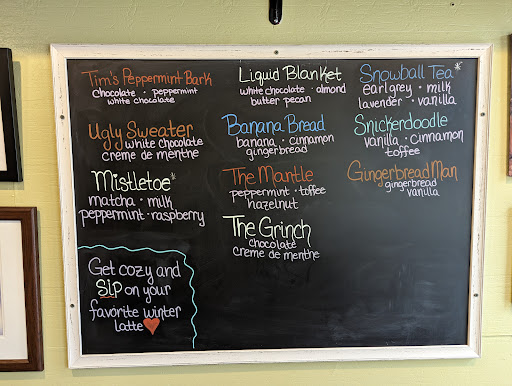 Tim's Peppermint Bark
chocolate · peppermint
white chocolate
Ugly Sweater
white chocolate
creme de menthe
Mistletoe*
matcha · milk
peppermint · raspberry
Get cozy and
sip on your
favorite winter
latte
Liquid Blanket
white chocolate · almond
butter pecan
Banana Bread
banana · cinnamon
gingerbread
The Mantle
peppermint · toffee
hazelnut
The Grinch
chocolate
creme de menthe
Snowball Tea*
earl grey · milk
lavender · vanilla
Snickerdoodle
vanilla · cinnamon
toffee
Gingerbread Man
gingerbread
vanilla